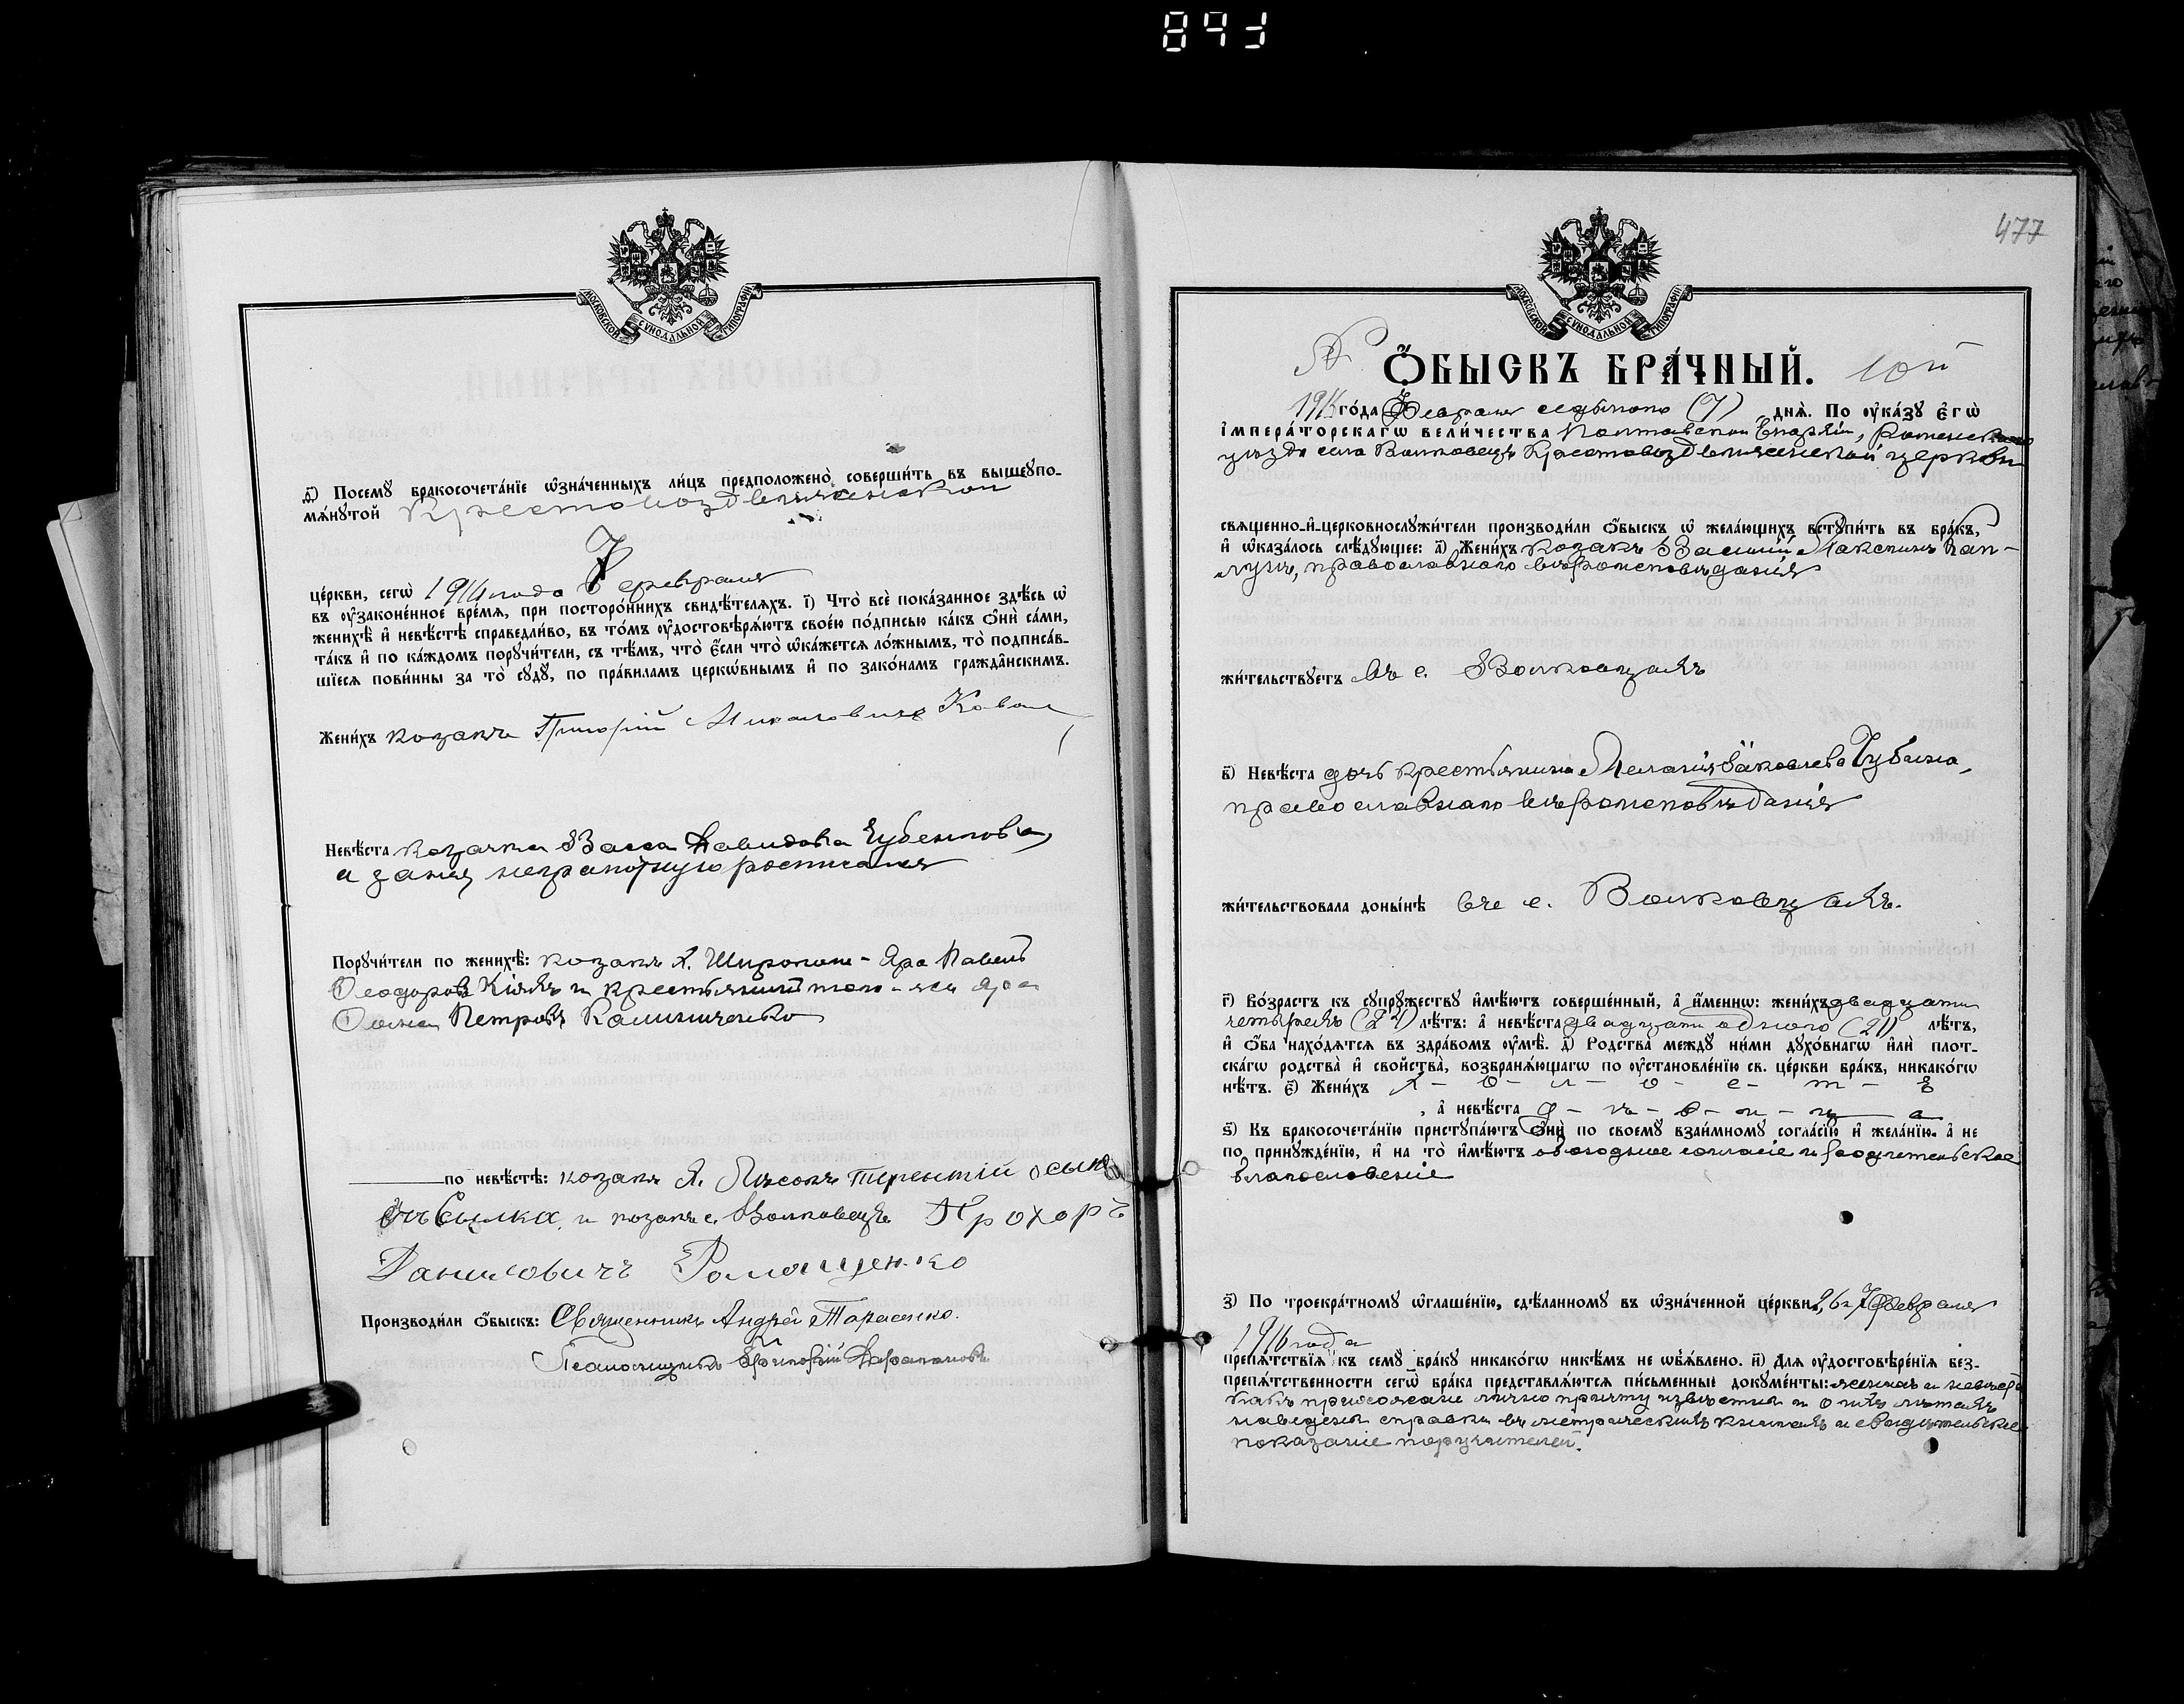 847
МОСКОВСКОЙ СѴНОДАЛЬНОЙ ТИПОГРАФІИ
ѳ҃) Посемꙋ̀ бракосочета́нїе ѡ҆зна́ченныхъ ли́цъ предположено̀ соверши́ть въ вышеꙋпо-
мѧ́нꙋтой Крестовоздвиженской
це́ркви, сегѡ̀ 1916 года 7 февраля
въ ᲂу҆законе́нное вре́мѧ, при посторо́ннихъ свидѣ́телѧхъ. і҃) Что̀ всѐ пока́занное здѣ́сь ѡ҆
женихѣ̀ и҆ невѣ́стѣ справедли́во, въ то́мъ ᲂу҆достовѣрѧ́ютъ свое́ю по́дписью ка́къ ѻ҆нѝ са́ми,
та́къ и҆ по ка́ждомъ порꙋчи́тели, съ тѣ́мъ, что̀ є҆́сли что̀ ѡ҆ка́жетсѧ ло́жнымъ, то̀ подписа́в-
шїесѧ пови́нны за то̀ сꙋдꙋ̀, по пра́виламъ церкѡ́внымъ и҆ по зако́намъ гражда́нскимъ.
Жени́хъ козакъ Григорій Михаловичъ Ковал
Невѣ́ста козачка Васса Давидова Губенкова,
а за нея неграмотную росписался
Порꙋчи́тели по женихѣ̀: козакъ х. Широкаго-Яра Павелъ
Ѳеодоровъ Кіяхъ и крестьянинъ того-же Яра
Ѳома Петровъ Калиниченко
по невѣ́стѣ: козакъ х. Лѣсокъ Терентій Осип
овъ Сылка, и козакъ с. Волковецъ Прохоръ
Даниловичъ Ромащенко
Производи́ли ѻ҆́быскъ: Священникъ Андрей Тарасенко.
Псаломщикъ Григорій
477
МОСКОВСКОЙ СѴНОДАЛЬНОЙ ТИПОГРАФІИ
Ѻ҆́БЫСКЪ БРА́ЧНЫЙ. 10й
1916 го́да Февраля седьмого (7) днѧ̀. По ᲂу҆ка́зꙋ є҆гѡ̀
і҆мпера́торскагѡ вели́чества Полтавской Епархіи, Роменскаго
уѣзда села Волковецъ Крестовоздвиженской церкви
свѧщенно-и҆-церковнослꙋжи́тели производи́ли ѻ҆́быскъ ѡ҆ жела́ющихъ встꙋпи́ть въ бра́къ,
и҆ ѡ҆каза́лось слѣ́дꙋющее: а҃) Жени́хъ козакъ Василій Максимъ Кап-
лунъ, православнаго вѣроисповѣданія
жи́тельствꙋетъ въ с. Волковцахъ
в҃) Невѣ́ста дочь крестьянина Меланія Яковлева Губина,
православнаго вѣроисповѣданія
жи́тельствовала доны́нѣ въ с. Волковцахъ.
г҃) Во́зрастъ къ сꙋпрꙋ́жествꙋ и҆мѣ́ютъ соверше́нный, а҆ и҆́меннѡ: жени́хъ двадцати
четырехъ (24) лѣ́тъ: а҆ невѣ́ста двадцати одного (21) лѣ́тъ,
и҆ ѻ҆́ба нахо́дѧтсѧ въ здра́вомъ ᲂу҆мѣ̀. д҃) Родства̀ междꙋ ни́ми дꙋхо́внагѡ и҆лѝ плот-
ска́гѡ родства̀ и҆ сво́йства̀, возбранѧ́ющагѡ по ᲂу҆становле́нїю св. це́ркви бра́къ, никако́гѡ
нѣ́тъ. є҃) Жени́хъ х-о-л-о-с-т-ъ
, а҆ невѣ́ста д-ѣ-в-и-ц-а
ѕ҃) Къ бракосочета́нїю пристꙋпа́ютъ ѻ҆нѝ по своемꙋ̀ взаи́мномꙋ согла́сїю и҆ жела́нїю. а҆ не
по принꙋжде́нїю, и҆ на то̀ и҆мѣ́ютъ обоюдное согласіе и родительское
благословеніе
з҃) По троекра́тномꙋ ѡ҆глаше́нїю, сдѣ́ланномꙋ въ ѡ҆зна́ченной це́ркви 2, 6 и 7 Февраля
1916 года
препѧ́тствїѧ къ семꙋ̀ бра́кꙋ никако́гѡ никѣ́мъ не ѡ҆б̾ѧ́влено. и҃) Длѧ ᲂу҆достовѣре́нїѧ без-
препѧ́тственности сегѡ̀ бра́ка представлѧ́ютсѧ пи́сьменные докꙋме́нты: женихъ и невѣста
какъ прихожане лично причту извѣстны и о ихъ лѣтахъ
наведены справки въ метрическихъ книгахъ и свидѣтельское
показаніе поручителей.